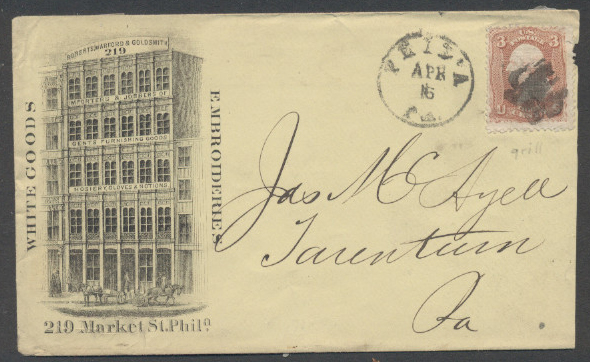 ROBERTS, WARFORD & GOLDSMITH
219
IMPORTERS & JOBBERS OF
GENTS FURNISHING GOODS
HOSIERY, GLOVES & NOTIONS
WHITE GOODS
EMBROIDERIES
219 Market St. Phila.
PHILA
APR
16
PA.
3 3
U.S. POSTAGE
grill
Jas McAyell
Tarentum
Pa